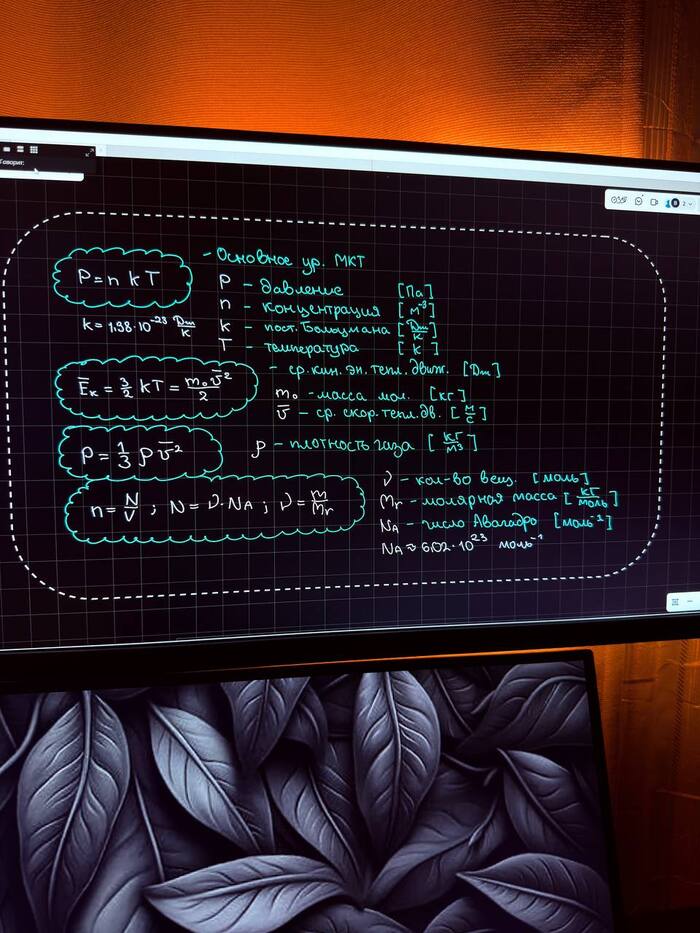 Говорит:
P = n k T
- Основное ур. МКТ
P - давление [Па]
n - концентрация [м⁻³]
k - пост. Больцмана [Дж/К]
T - температура [К]
k = 1,38·10⁻²³ Дж/К
Ēₖ = 3/2 kT = m₀v̄²/2
- ср. кин. эн. тепл. движ. [Дж]
m₀ - масса мол. [кг]
v̄ - ср. скор. тепл. дв. [м/с]
P = 1/3 ρ v̄²
ρ - плотность газа [кг/м³]
n = N/V ; N = ν·Nᴀ ; ν = m/Mr
ν - кол-во вещ. [моль]
Mr - молярная масса [кг/моль]
Nᴀ - число Авагадро [моль⁻¹]
Nᴀ ≈ 6,02·10²³ моль⁻¹